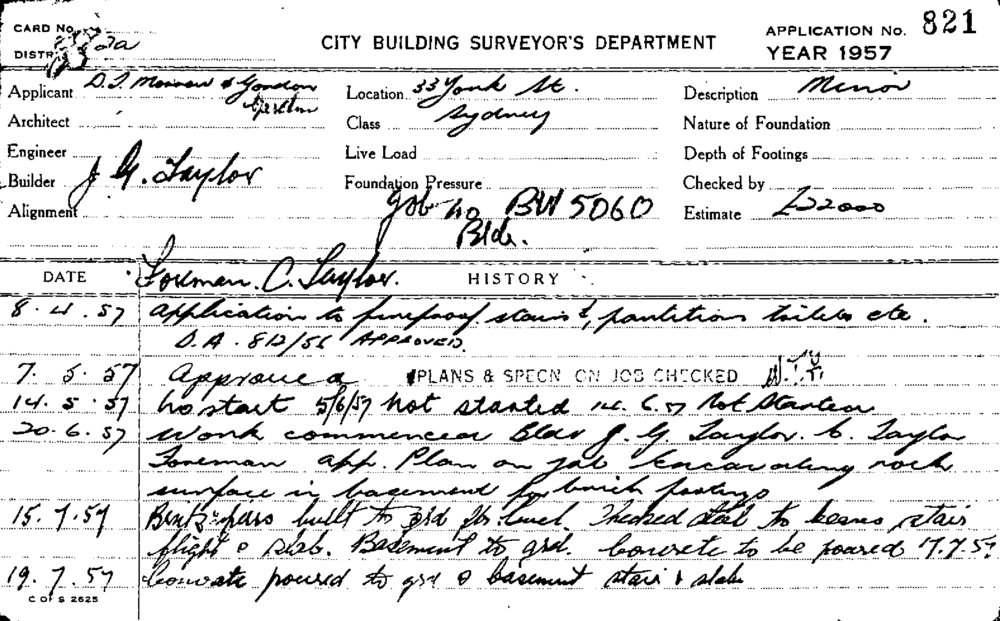 CARD No. 2a
DISTR
CITY BUILDING SURVEYOR'S DEPARTMENT
APPLICATION No. 821
YEAR 1957
Applicant D. T. Morrow & Gordon
Location 33 York St.
Description Minor
Architect
Class Sydney
Nature of Foundation
Engineer
Live Load
Depth of Footings
Builder J G. Taylor
Foundation Pressure
Checked by
Alignment
Job no BW 5060
Estimate £22000
Bldr.
DATE
Foreman. C. Taylor.
HISTORY
8.4.57 Application to fireproof stairs, partitions toilets etc.
D.A. 812/56 APPROVED.
7.5.57 Approved PLANS & SPECN ON JOB CHECKED
14.5.57 No start 5/6/57 Not started 14.6.57 Not Started
20.6.57 Work commenced Bldr J. G. Taylor. C. Taylor
Foreman app. Plan on job Excavating rock
surface in basement for brick footings
15.7.57 Brick piers built to 3rd flr. level. Checked steel to beams, stair
flight & slab. Basement to grd. Concrete to be poured 17.7.57
19.7.57 Concrete poured to grd & basement stair & slab
C OF S 2625